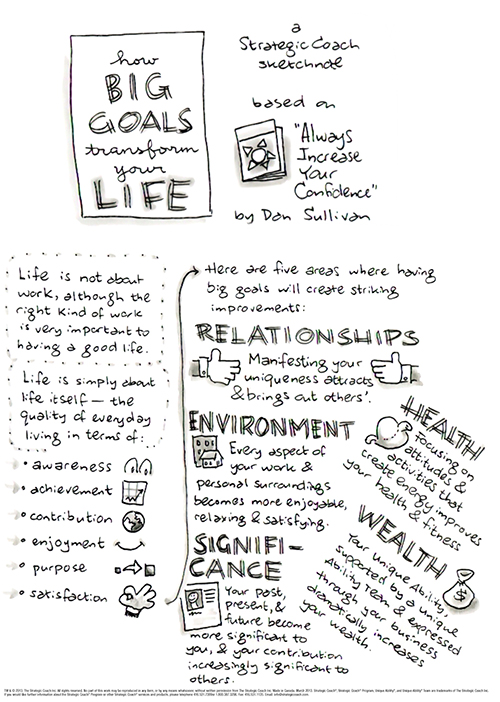 how
BIG
GOALS
transform
your
LIFE
a
Strategic Coach
sketchnote
based on
"Always
Increase
Your
Confidence"
by Dan Sullivan
Life is not about
work, although the
right kind of work
is very important to
having a good life.
Life is simply about
life itself — the
quality of everyday
living in terms of:
• awareness
• achievement
• contribution
• enjoyment
• purpose
• satisfaction
Here are five areas where having
big goals will create striking
improvements:
RELATIONSHIPS
Manifesting your
uniqueness attracts
& brings out others'.
ENVIRONMENT
Every aspect of
your work &
personal surroundings
becomes more enjoyable,
relaxing & satisfying.
SIGNIFI-
CANCE
Your past,
present, &
future become
more significant to
you, & your contribution
increasingly significant to
others.
HEALTH
Focusing on
attitudes &
activities that
create energy improves
your health & fitness
WEALTH
Your Unique Ability,
supported by a Unique
Ability Team & expressed
through your business
dramatically increases
your wealth.
$